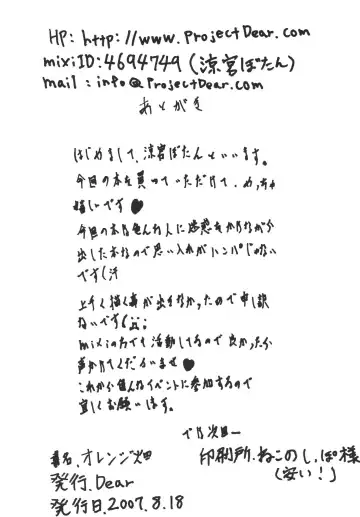 HP: http://www.ProjectDear.com
mixiID:4694749(涼宮ぼたん)
mail:info@ProjectDear.com
あとがき
はじめまして、涼宮ぼたんといいます。
今回の本を買っていただけて、めっちゃ
嬉しいです♥
今回の本は色んな人に迷惑をかけながら
出した本なので思い入れがハンパじゃない
です(汗
上手く描く事が出来なかったので申し訳
ないです(;;;
mixiの方でも活動してるので良かったら
声かけてくださいませ♥
これから色んなイベントに参加するので
宜しくお願いします。
では次回ー
書名.オレンジ畑
発行.Dear
発行日.2007.8.18
印刷所.ねこのしっぽ様
(安い!)